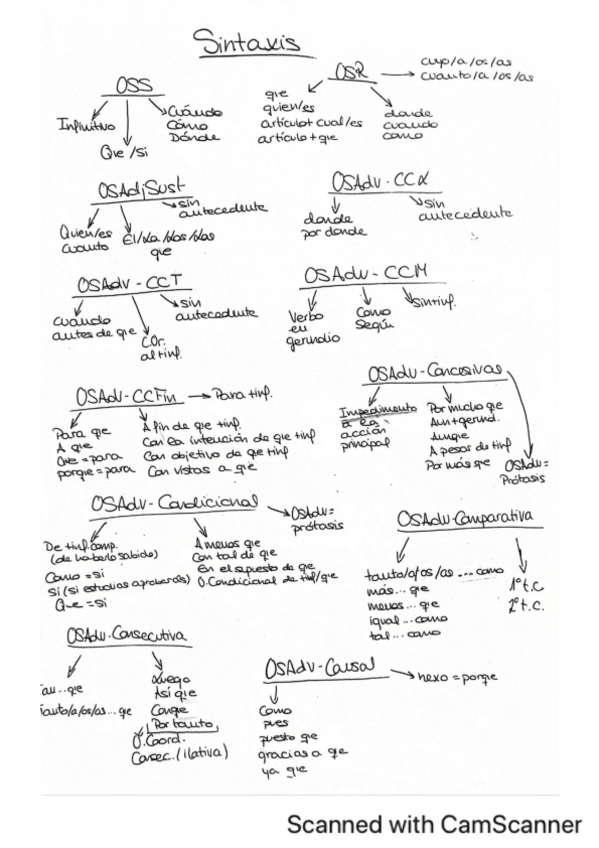 Sintaxis
OSS
Infinitivo
Que/si
Cuándo
Cómo
Dónde
OSR
cuyo/a/os/as
cuanto/a/os/as
que
quien/es
artículo+cual/es
artículo+que
donde
cuando
como
OSAdjSust
Quien/es
cuanto
El/La/Los/Las
que
sin
antecedente
OSAdv-CCL
donde
por donde
sin
antecedente
OSAdv-CCT
cuando
antes de que
C.Or.
al+inf.
sin
antecedente
OSAdv-CCM
Verbo
en
gerundio
Como
Según
Sin+inf.
OSAdv-CCFin
Para+inf.
Para que
A que
Que=para
porque=para
A fin de que +inf.
Con la intención de que +inf
Con objetivo de que +inf
Con vistas a que
OSAdv-Concesivas
Impedimento
a la
acción
principal
Por mucho que
Aun+gerund.
Aunque
A pesar de +inf
Por más que
OSAdv=
Prótasis
OSAdv-Condicional
OSAdv=
prótasis
De +inf.comp.
(de haberlo sabido)
Como=si
Si (si estudias aprobarás)
Que=si
A menos que
Con tal de que
En el supuesto de que
O.Condicional de +inf/que
OSAdv-Comparativa
tanto/a/os/as ... como
más... que
menos... que
igual... como
tal... como
1º t.C.
2º t.C.
OSAdv-Consecutiva
Tan...que
Tanto/a/os/as... que
Luego
Así que
Conque
Por tanto
O.Coord.
Consec.(ilativa)
OSAdv-Causal
nexo=porque
Como
pues
puesto que
gracias a que
ya que
Scanned with CamScanner